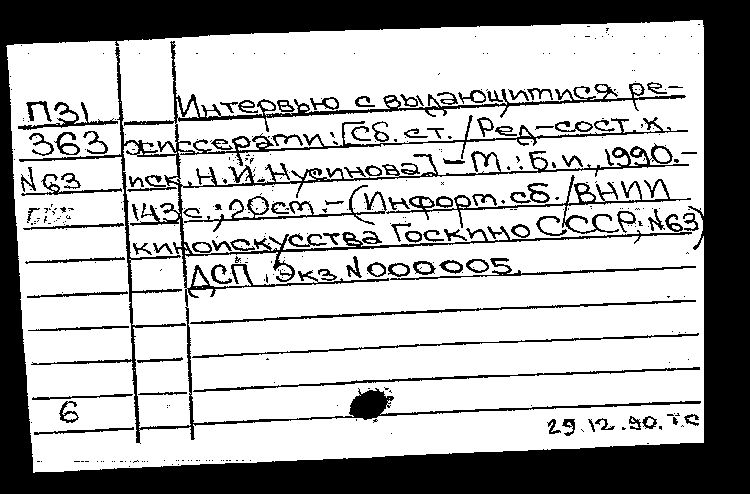 П31 Интервью с выдающимися ре-
363 жиссерами: [Сб. ст. / Ред.-сост. к.
N63 иск. Н.И. Нусинова] - М.: Б.и., 1990.-
143 с.; 20 см. - (Информ. сб. / ВНИИ
киноискусства Госкино СССР; N63)
ДСП. Экз. N000005.
6
29.12.90. Т.С